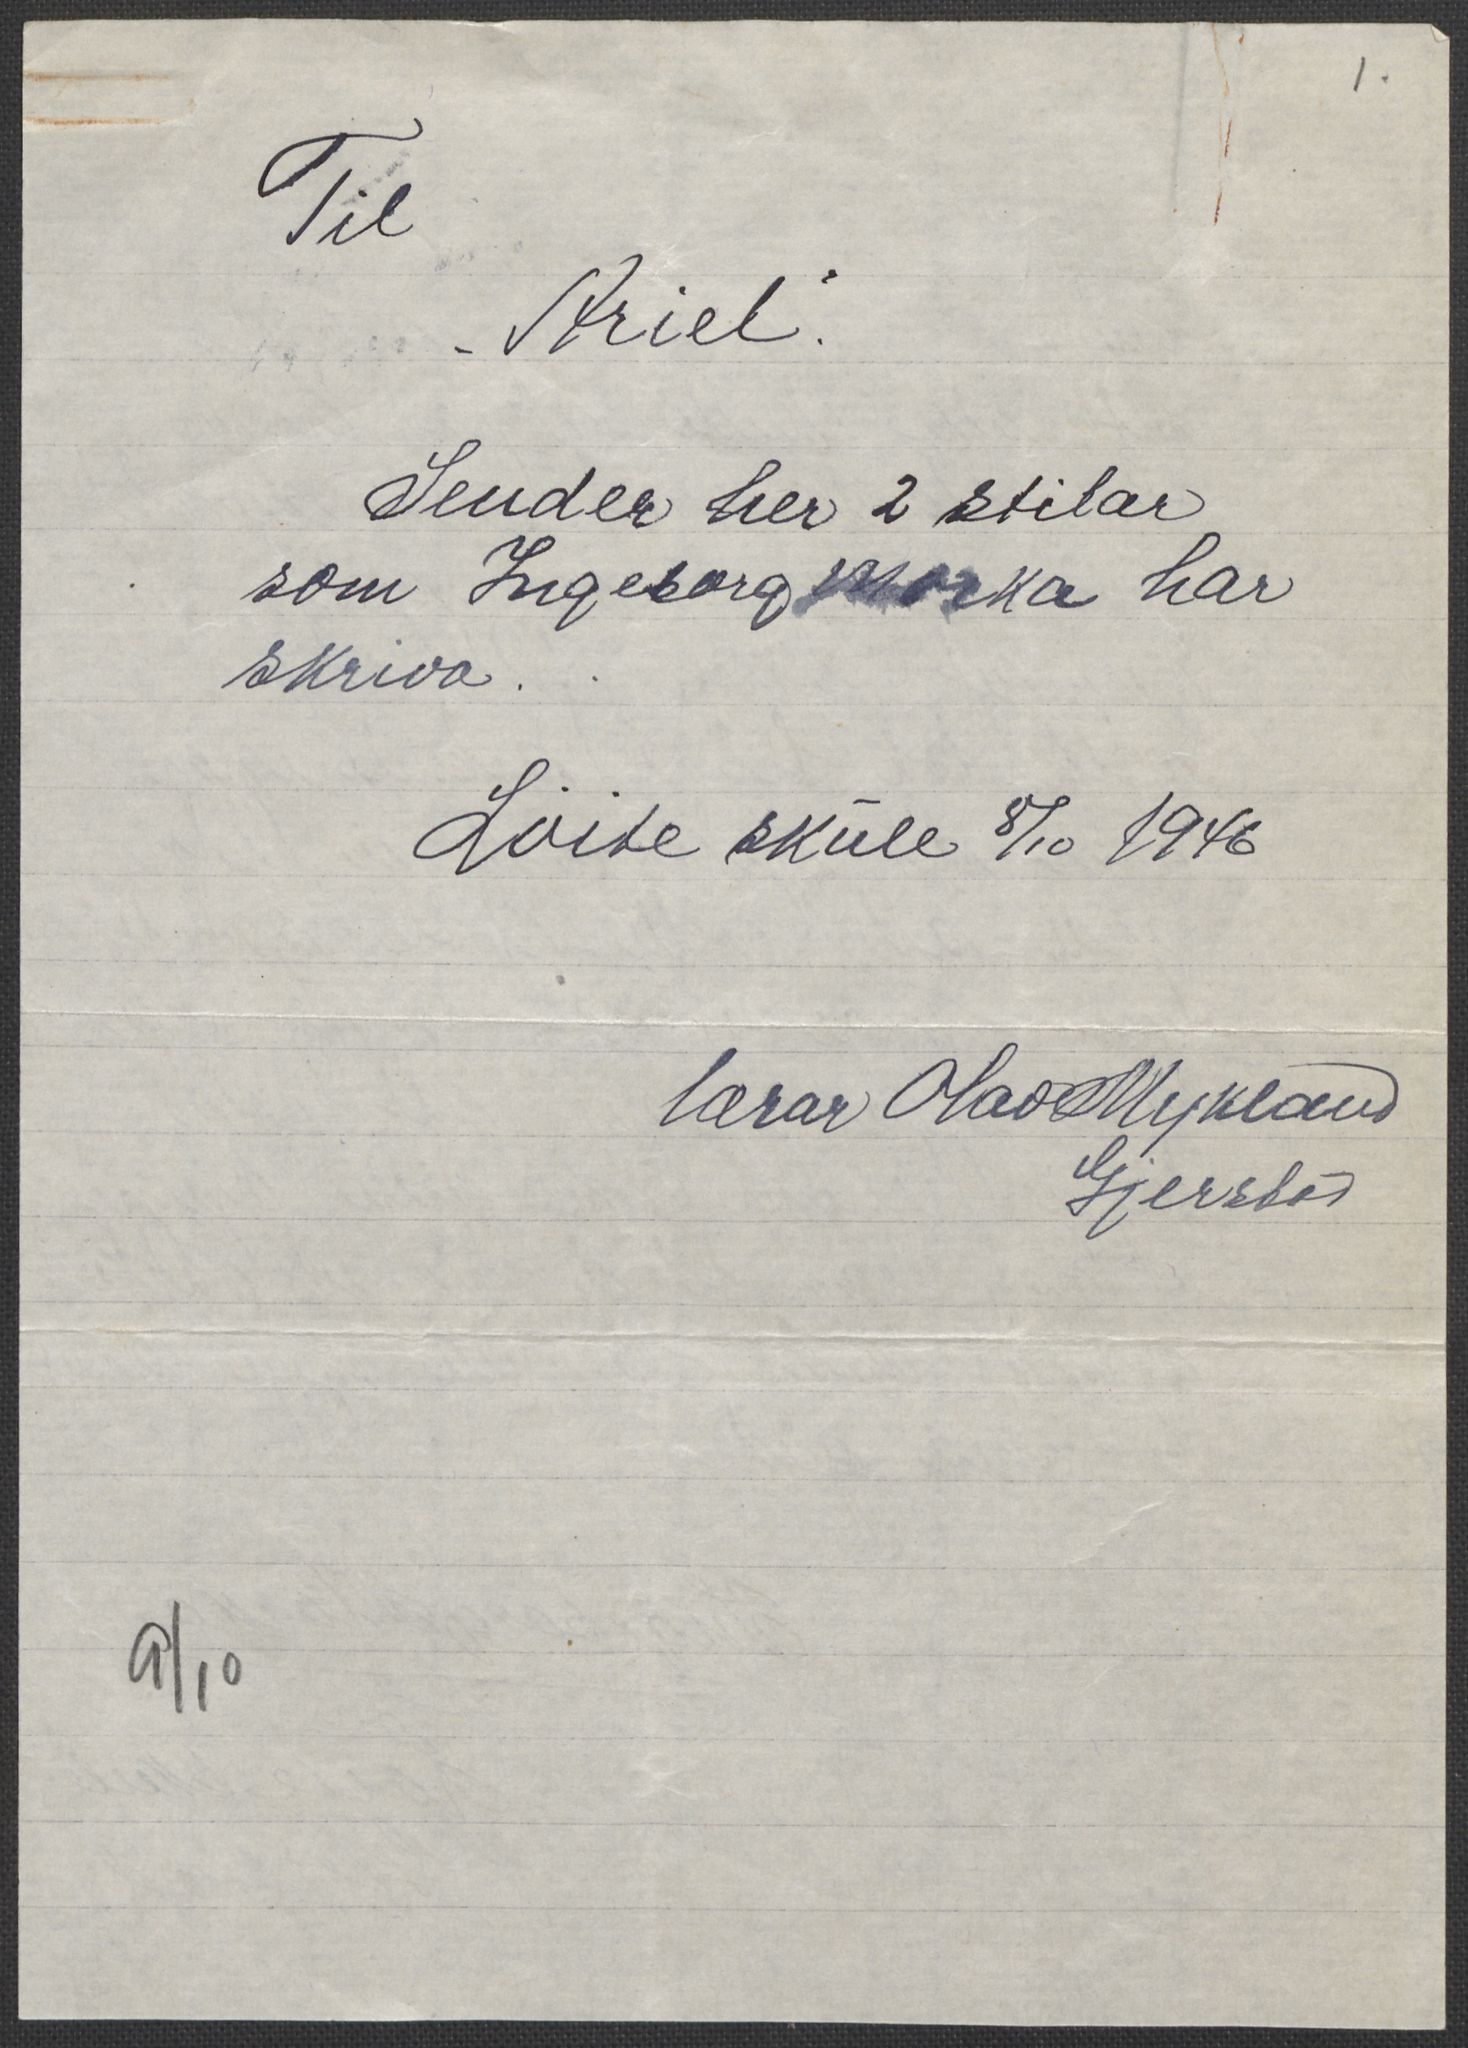 1.
Til
"Ariel".
Sender her 2 stilar
som Ingeborg Morka har
skriva.
Löite skule 8/10 1946
lærar Olav Mykland
Gjerstad
9/10